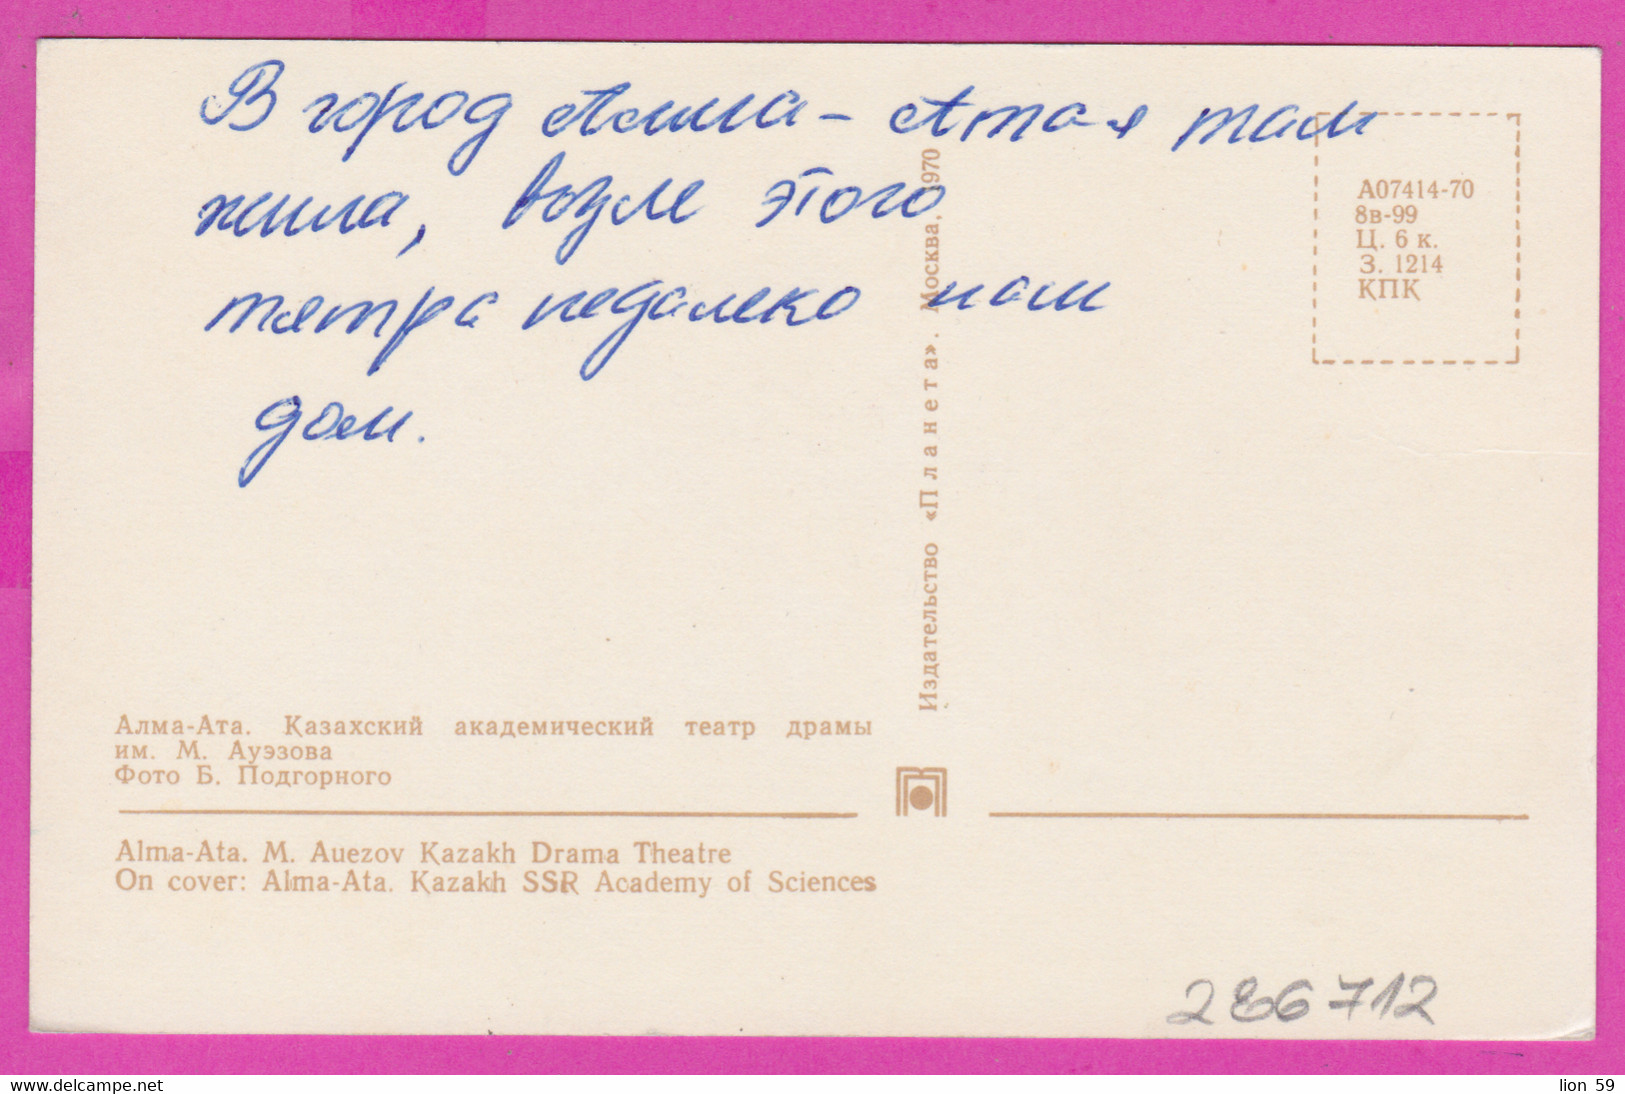 В город Алма-Ата я там
жила, возле этого
тятра недалеко наш
дом.
А07414-70
8в-99
Ц. 6 к.
З. 1214
КПК
Издательство «Планета». Москва, 1970
Алма-Ата. Казахский академический театр драмы
им. М. Ауэзова
Фото Б. Подгорного
Alma-Ata. M. Auezov Kazakh Drama Theatre
On cover: Alma-Ata. Kazakh SSR Academy of Sciences
286712
delcampe.net
lion 59